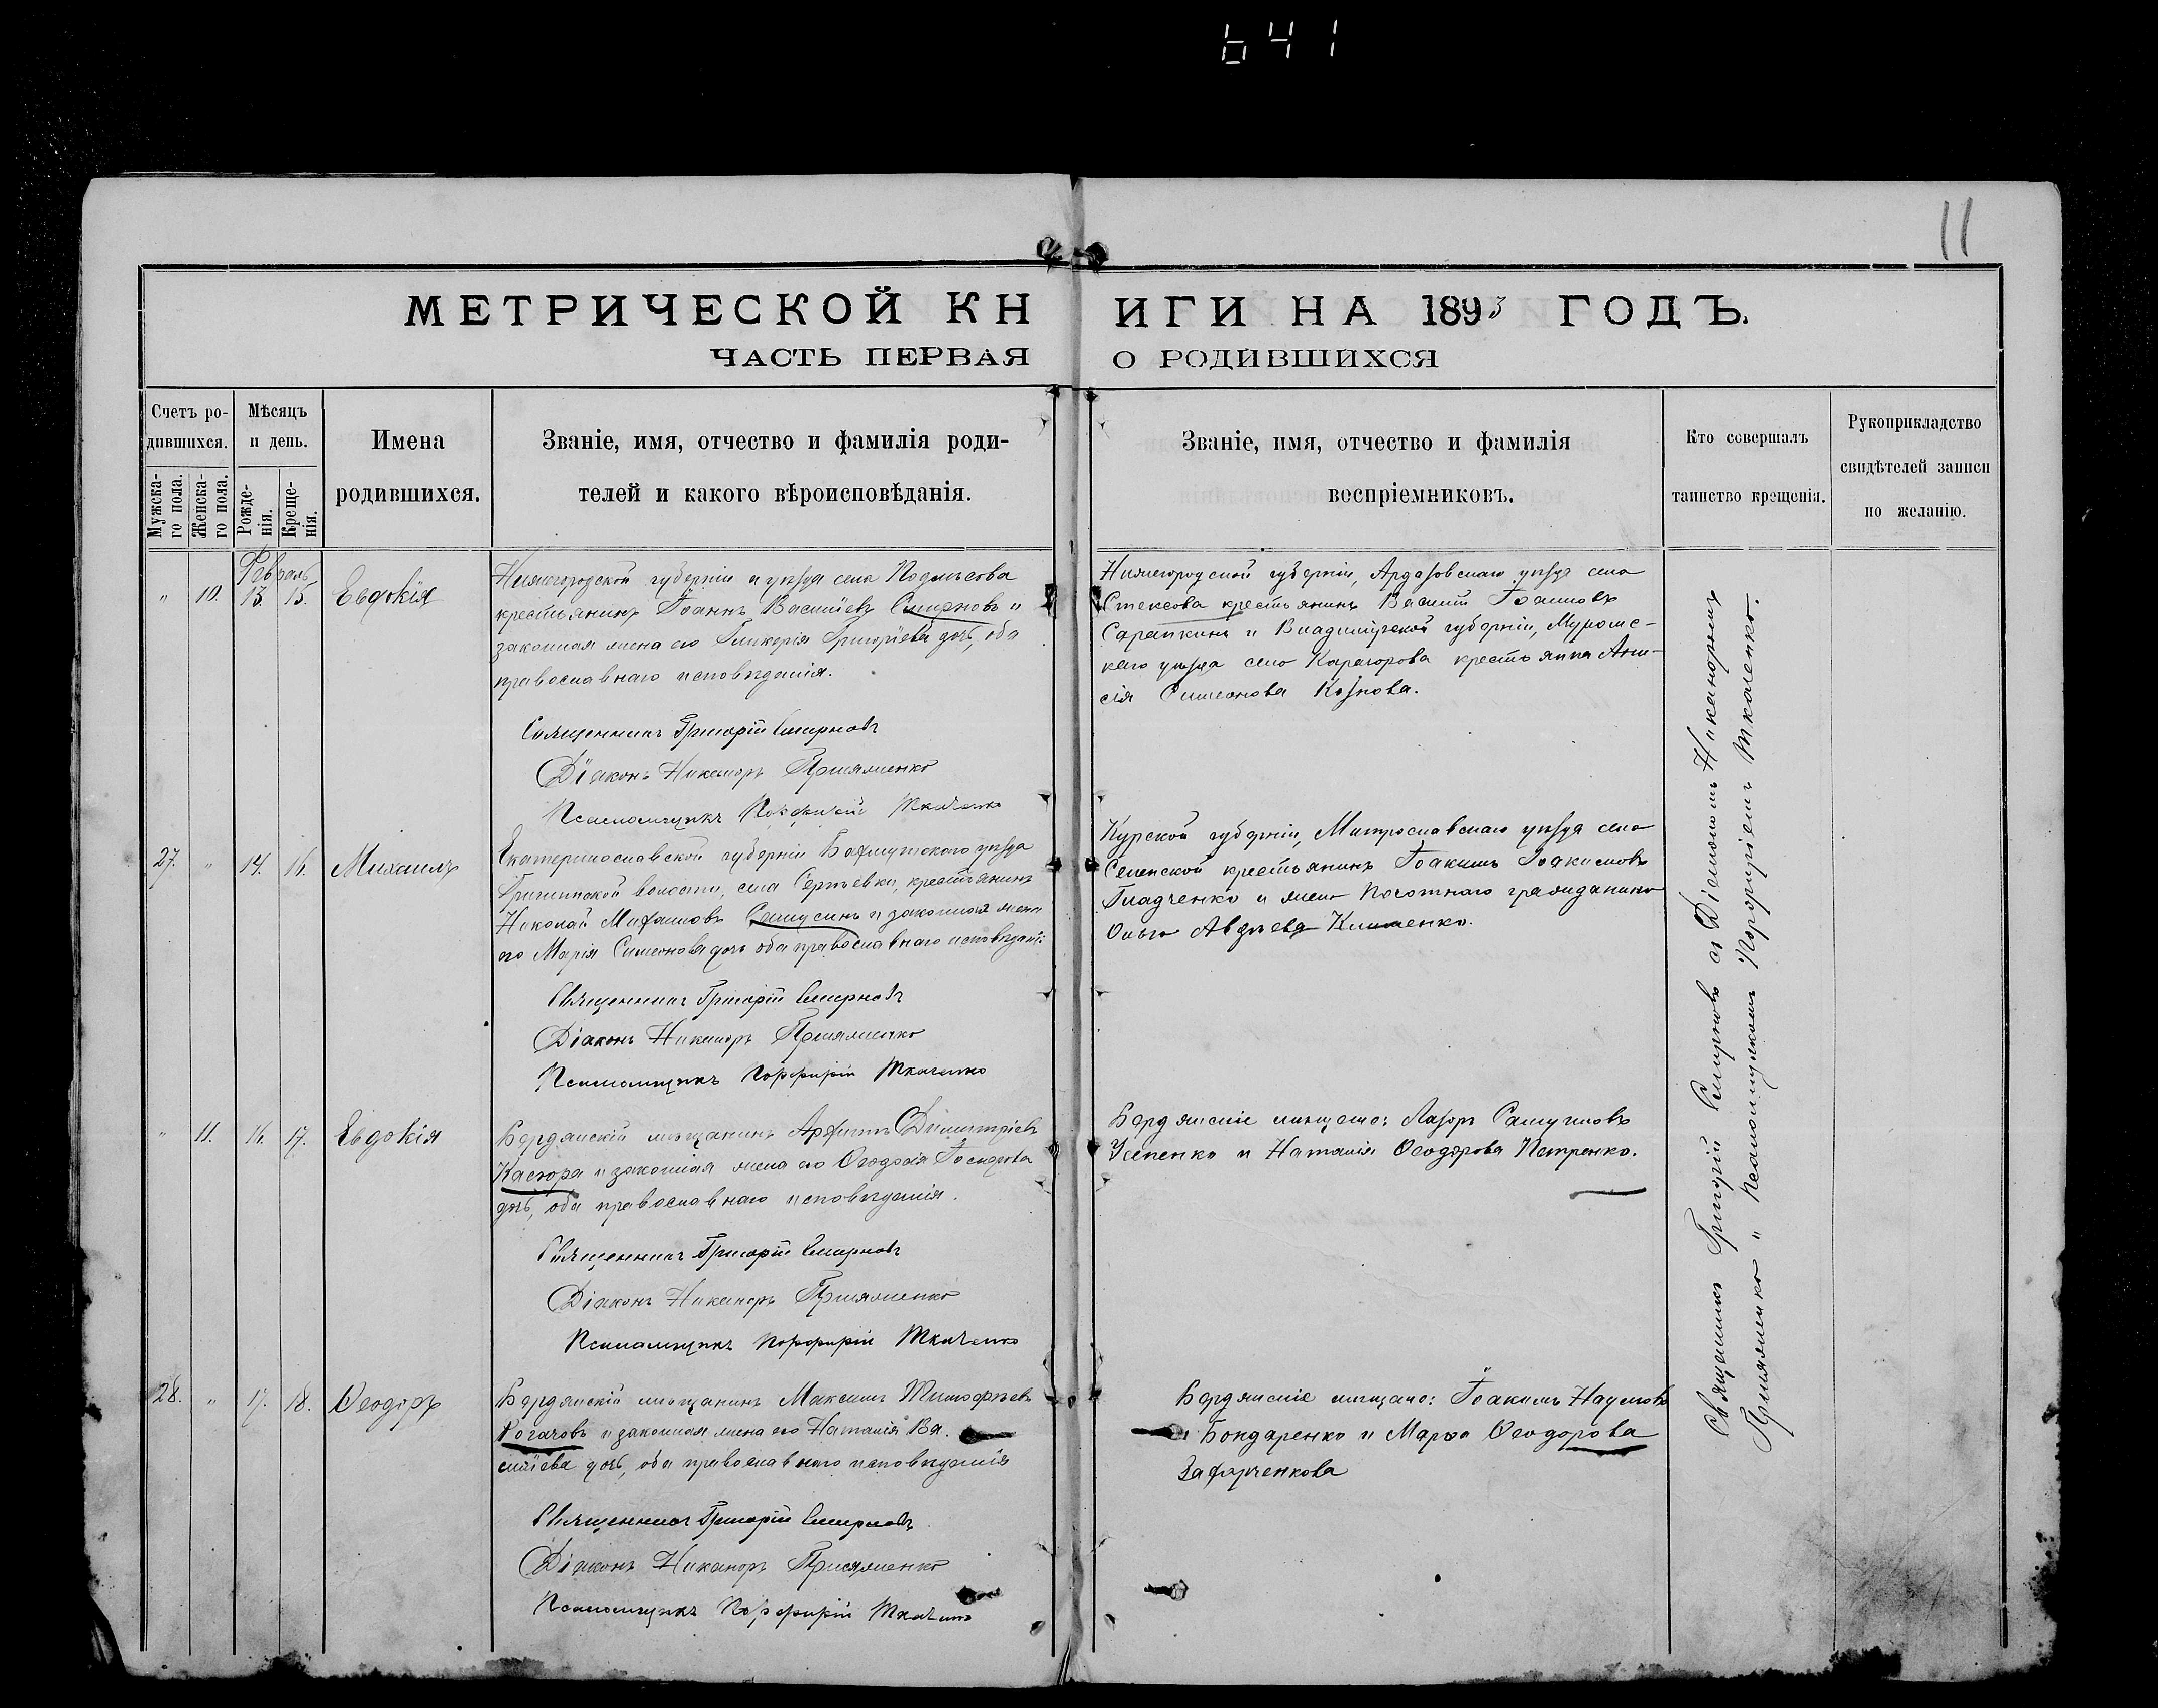 641
11
МЕТРИЧЕСКОЙ КНИГИ НА 1893 ГОДЪ.
ЧАСТЬ ПЕРВАЯ О РОДИВШИХСЯ
Счетъ ро-
дившихся.
Мужска-
го пола.
Женска-
го пола.
Мѣсяцъ
и день.
Рожде-
нія.
Креще-
нія.
Имена
родившихся.
Званіе, имя, отчество и фамилія роди-
телей и какого вѣроисповѣданія.
Званіе, имя, отчество и фамилія
воспріемниковъ.
Кто совершалъ
таинство крещенія.
Рукоприкладство
свидѣтелей записи
по желанію.
Февраль
" 10. 13. 15. Евдокія
Нижегородской губерніи и уѣзда села
крестьянинъ Іоаннъ Василіевъ Смирновъ и
законная жена его Гликерія Григоріева дочь, оба
православнаго исповѣданія.
Священникъ Григорій Смирновъ
Діаконъ Никаноръ Присяженко
Псаломщикъ Порфирій Ткаченко
Нижегородской губерніи, Ардатовскаго уѣзда села
Стексова крестьянинъ Василій Іоанновъ
Сарапкинъ и Владимірской губерніи, Муромс-
каго уѣзда село Карачарова крестьянка Ани-
сія Симеонова
27. " 14. 16. Михаилъ
Екатеринославской губерніи Бахмутскаго уѣзда
Гришинской волости, села Сергѣевки, крестьянинъ
Николай и законная жена
его Марія Симеонова дочь оба православнаго исповѣданія
Священникъ Григорій Смирновъ
Діаконъ Никаноръ Присяженко
Псаломщикъ Порфирій Ткаченко
Курской губерніи, уѣзда села
крестьянинъ Іоакимъ Іоакимовъ
Гладченко и жена Почотнаго гражданина
Ольга Авдѣева Клименко.
" 11. 16. 17. Евдокія
Бердянскій мѣщанинъ Димитріевъ
Кастора и законная жена его Ѳеодосія
дочь, оба православнаго исповѣданія.
Священникъ Григорій Смирновъ
Діаконъ Никаноръ Присяженко
Псаломщикъ Порфирій Ткаченко
Бердянскіе мѣщане: Лазорь Самуиловъ
Усенко и Наталія Ѳеодорова Петренко.
28. " 17. 18. Ѳеодоръ
Бердянскій мѣщанинъ Максимъ Тимофѣевъ
Рогачовъ и законная жена его Наталія Ва-
силіева дочь, оба православнаго исповѣданія
Священникъ Григорій Смирновъ
Діаконъ Никаноръ Присяженко
Псаломщикъ Порфирій Ткаченко
Бердянскіе мѣщане: Іоакимъ Наумовъ
Бондаренко и Марѳа Ѳеодорова
Захарченкова
Священникъ Григорій Смирновъ съ Діакономъ Никаноромъ
Присяженко " Псаломщикомъ Порфиріемъ Ткаченко.